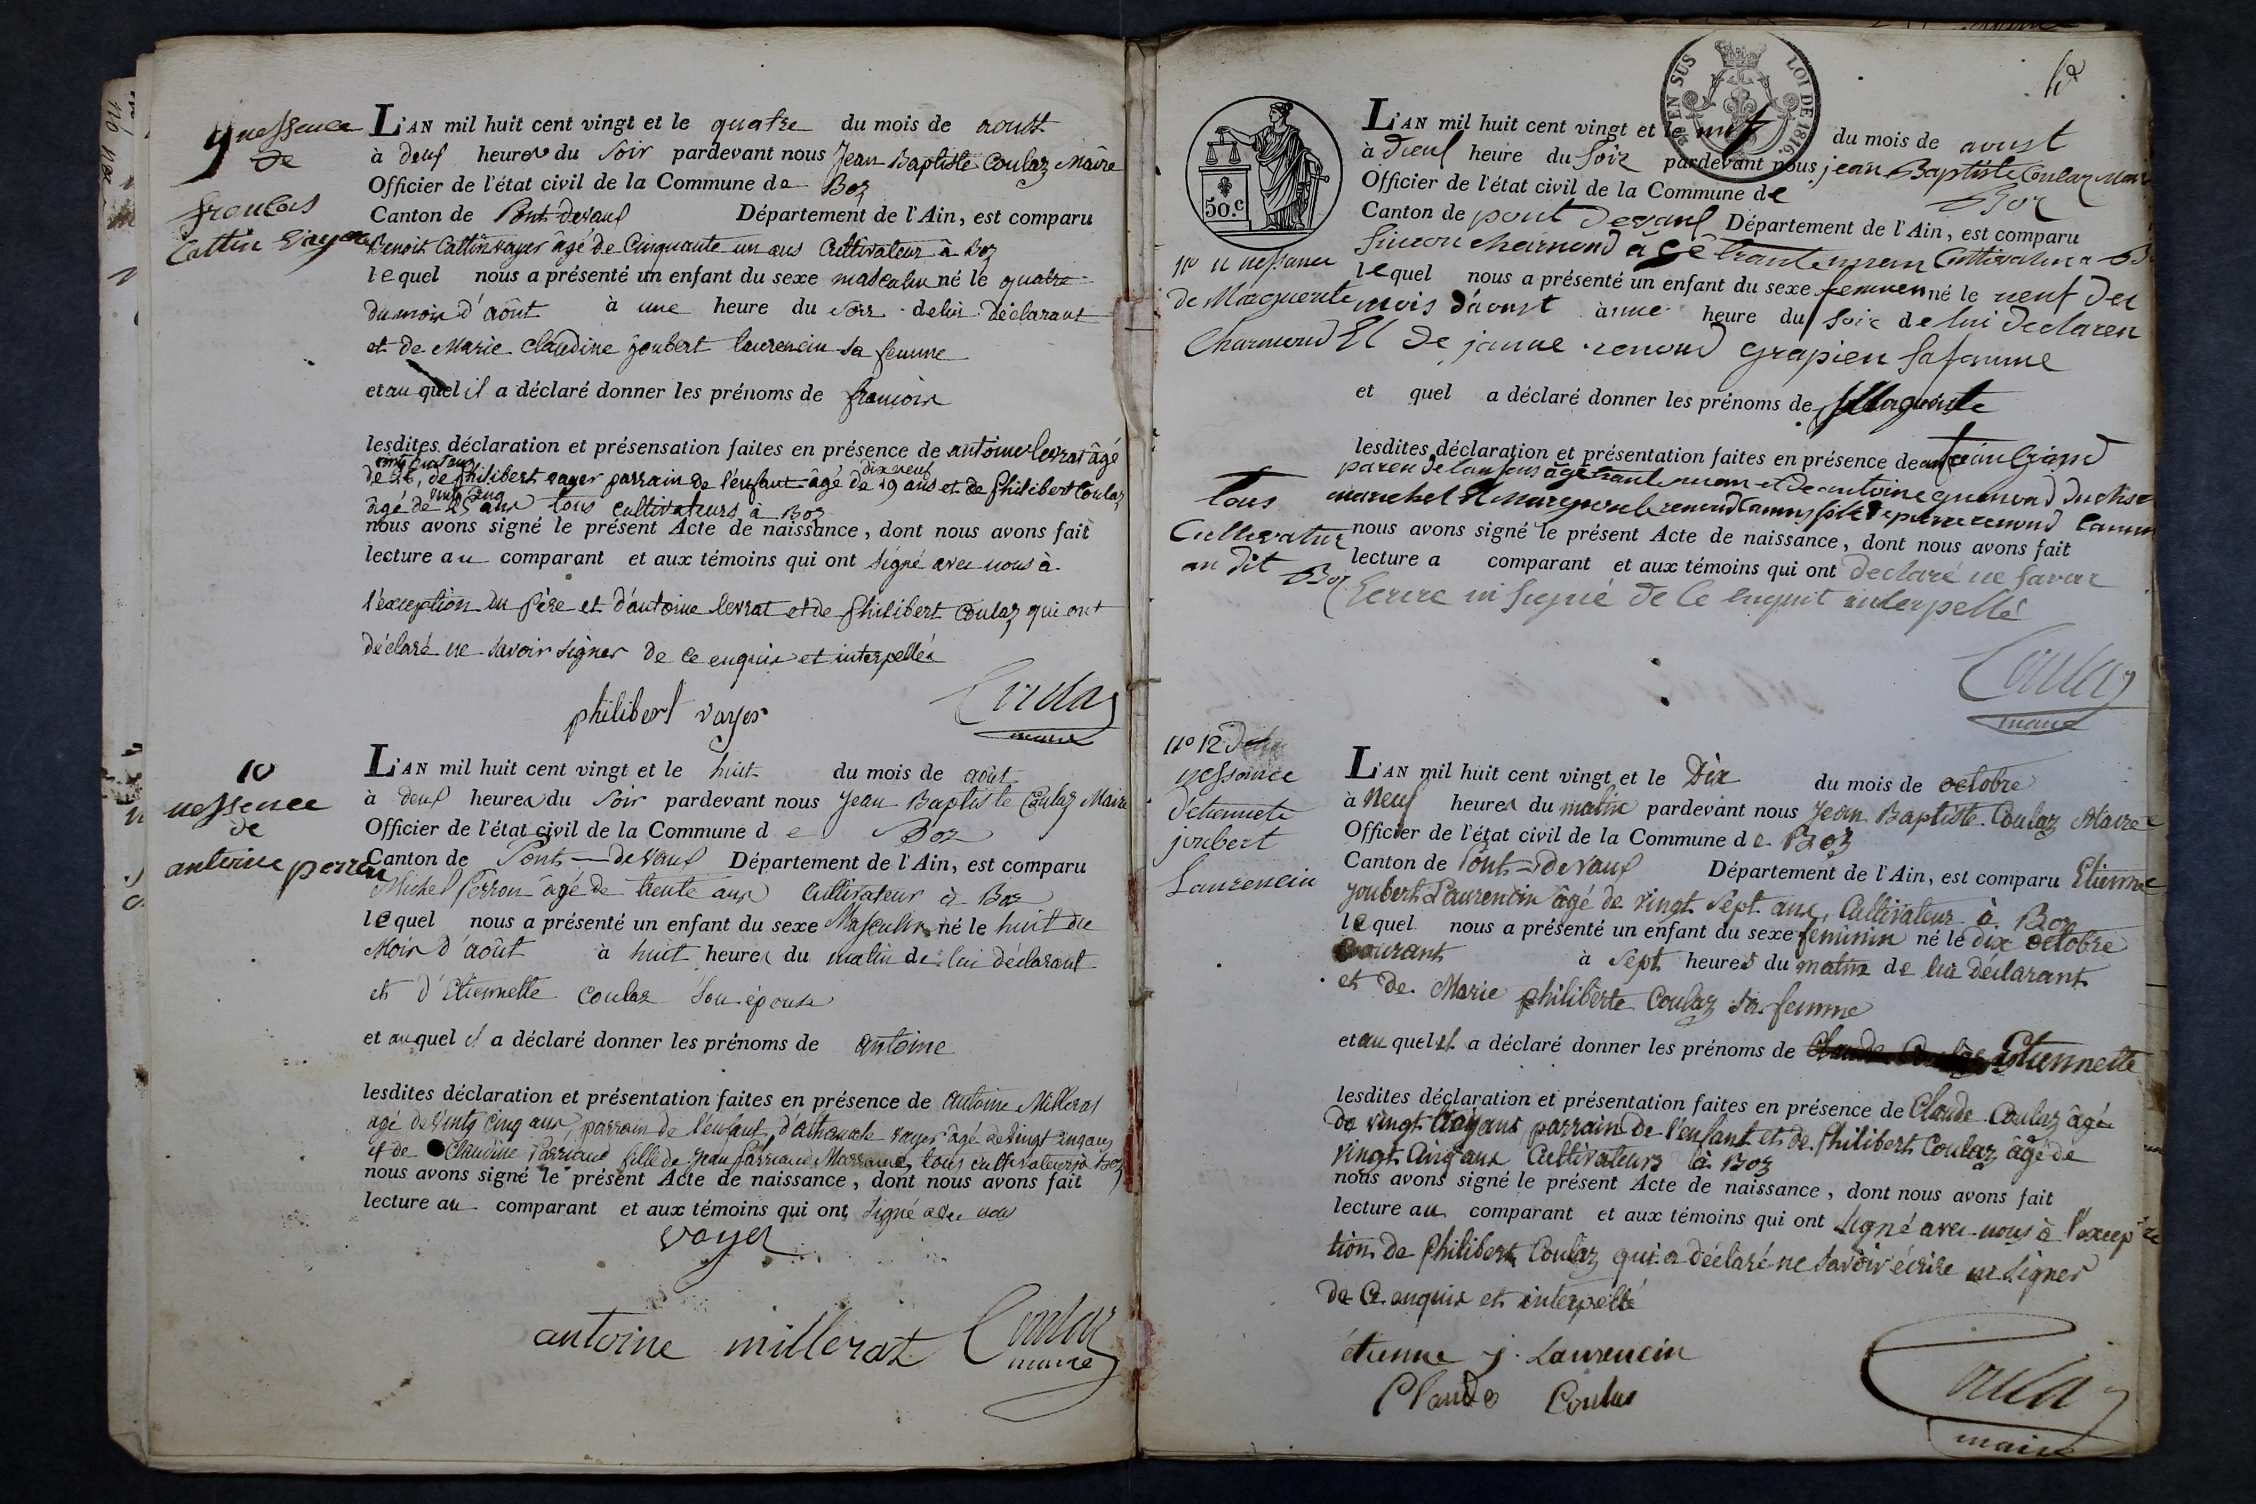 9 nessence
de
francois
Cattin Vayer
L'AN mil huit cent vingt et le quatre du mois de aoust
à deux heures du Soir pardevant nous Jean Baptiste Coulaz Maire
Officier de l'état civil de la Commune de Boz
Canton de Pont-devaux Département de l'Ain, est comparu
Benoit Cattin vayer âgé de Cinquante un ans Cultivateur à Boz
lequel nous a présenté un enfant du sexe masculin né le quatre
du mois d'août à une heure du soir de lui déclarant
et de Marie Claudine joubert laurencin sa femme
et au quel il a déclaré donner les prénoms de françois
lesdites déclaration et présensation faites en présence de antoine levrat âgé
de philibert vayer parrain de l'enfant âgé de dix neuf 19 ans et de philibert Coulaz
âgé de vingt cinq 25 ans tous cultivateurs à Boz
nous avons signé le présent Acte de naissance, dont nous avons fait
lecture au comparant et aux témoins qui ont signé avec nous à
l'exception du père et d'antoine levrat et de philibert Coulaz qui ont
déclaré ne savoir signer de ce enquis et interpellés
philibert vayer Coulaz
maire
10
nessence
de
antoine perron
L'AN mil huit cent vingt et le huit du mois de août
à deux heures du soir pardevant nous Jean Baptiste Coulaz Maire
Officier de l'état civil de la Commune de Boz
Canton de Pont-de vaux Département de l'Ain, est comparu
Michel Perron âgé de trente ans Cultivateur à Boz
lequel nous a présenté un enfant du sexe Masculin né le huit du
Mois d'août à huit heures du matin de lui déclarant
et d'Etiennette Coulaz son épouse
et auquel il a déclaré donner les prénoms de antoine
lesdites déclaration et présentation faites en présence de antoine Millerat
agé de vingt cinq ans, parrain de l'enfant, vayer âgé de vingt cinq ans
et de Claudine fille de Jean Marraine, tous cultivateurs à Boz
nous avons signé le présent Acte de naissance, dont nous avons fait
lecture au comparant et aux témoins qui ont signé avec nous
vayer
antoine millerat Coulaz
maire
EN SUS LOI DE 1816.
50.c
no 11 nessance
de Marguerite
Charmond
L'AN mil huit cent vingt et le neuf du mois de aoust
à deux heure du soir pardevant nous jean Baptiste Coulaz
Officier de l'état civil de la Commune de Boz
Canton de pont devaux Département de l'Ain, est comparu
Simeon Charmond âgé Cultivateur a
lequel nous a présenté un enfant du sexe femenen né le neuf du
mois d'aoust à une heure du soir de lui declaren
Et de janne renoud grapien sa famme
et quel a déclaré donner les prénoms de Marguerite
lesdites déclaration et présentation faites en présence de
nous avons signé le présent Acte de naissance, dont nous avons fait
lecture a comparant et aux témoins qui ont declaré ne savoir
Ecrire ni signé de ce enquit interpellé
tous
Cultivateur
au dit
Boz
Coulaz
maire
no 12
nessance
detiennete
joubert
Laurencin
L'AN mil huit cent vingt et le Dix du mois de octobre
à Neuf heures du matin pardevant nous Jean Baptiste Coulaz Maire
Officier de l'état civil de la Commune de Boz
Canton de Pont-de vaux Département de l'Ain, est comparu Etienne
joubert Laurencin âgé de vingt sept ans, Cultivateur à Boz
lequel nous a présenté un enfant du sexe féminin né le dix octobre
courant à sept heures du matin de lui déclarant
et de Marie philiberte Coulaz sa femme
et au quel il a déclaré donner les prénoms de Etiennette
lesdites déclaration et présentation faites en présence de Claude Coulaz âgé
de vingt trois ans parrain de l'enfant et de philibert Coulaz âgé de
vingt cinq ans Cultivateurs à Boz
nous avons signé le présent Acte de naissance, dont nous avons fait
lecture au comparant et aux témoins qui ont signé avec nous à l'excep
tion de philibert Coulaz qui a déclaré ne savoir écrire ni signer
de ce enquis et interpellé
étienne j. Laurencin
Claude Coulas Coulaz
maire